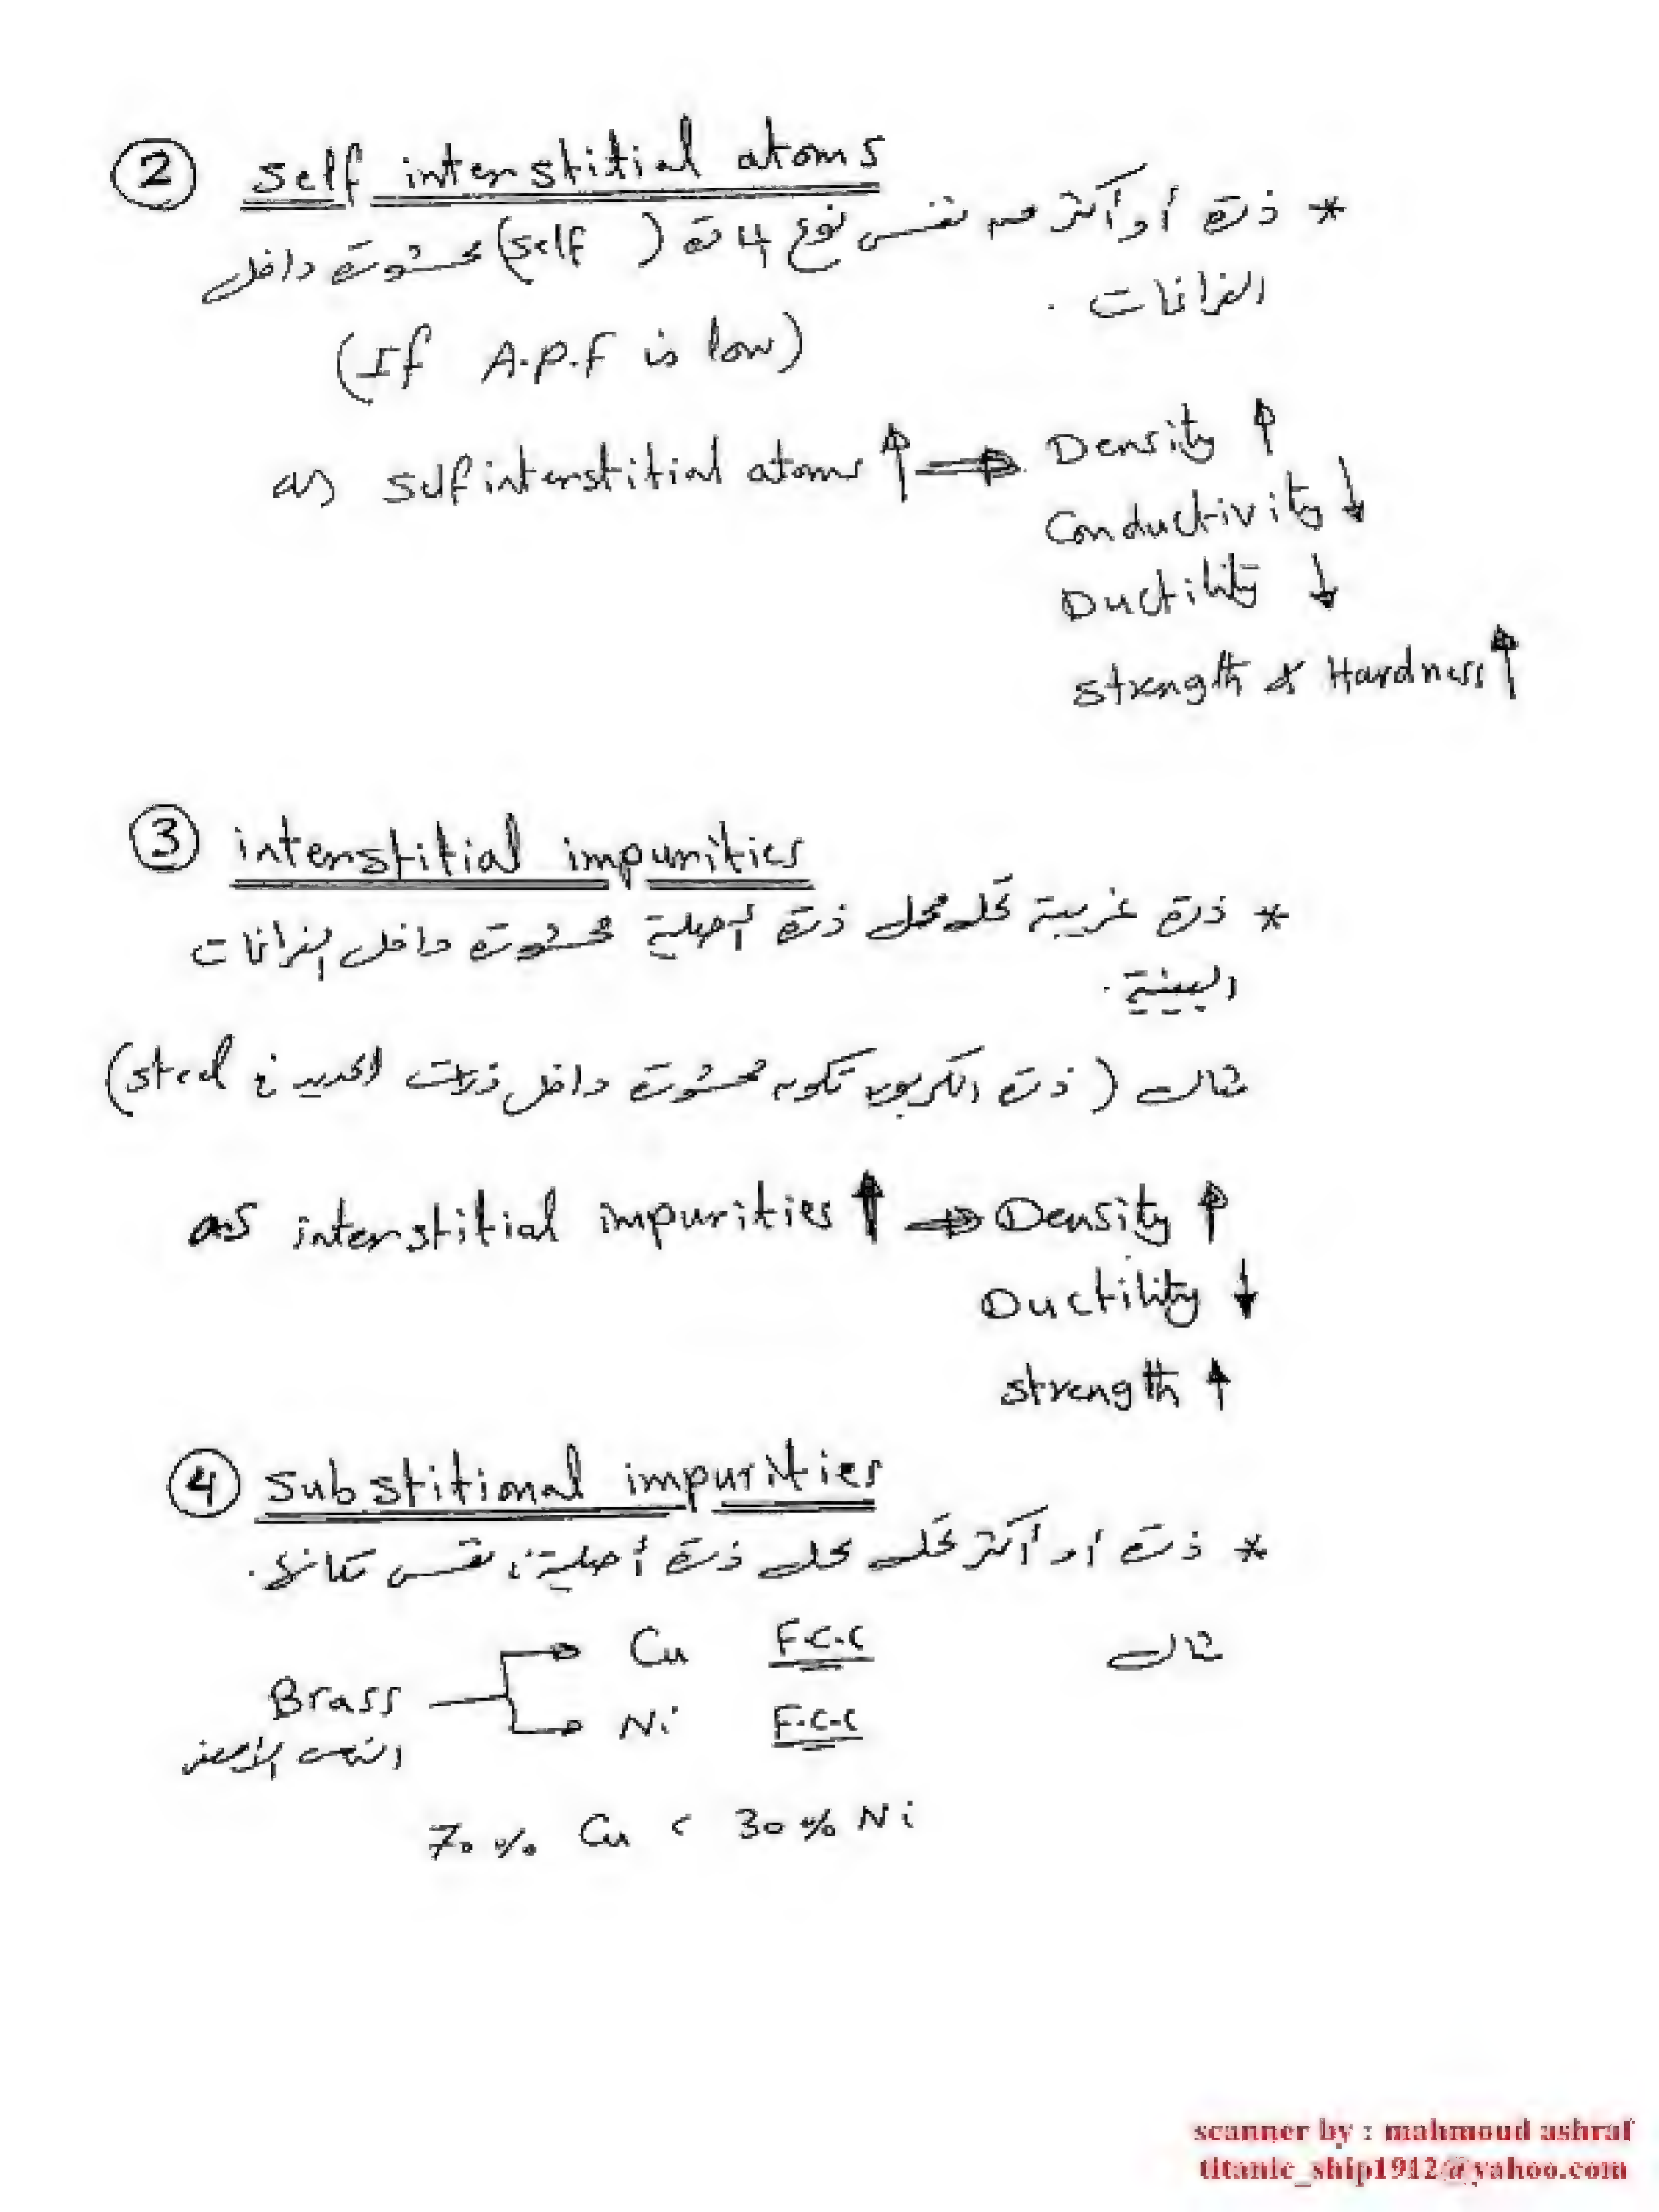 2 self interstitial atoms
* ذرة أو أكثر من نفس نوع المادة (self) محشورة داخل
الفراغات .
(If A.P.F is low)
as sulfinterstitial atoms ↑ ⇒ Density ↑
Conductivity ↓
Ductility ↓
strength & Hardness ↑
3 interstitial impurities
* ذرة غريبة تحل محل ذرة أصلية محشورة داخل الفراغات
البينية .
مثال (ذرة الكربون تكون محشورة داخل ذرات الحديد في steel)
as interstitial impurities ↑ ⇒ Density ↑
Ductility ↓
strength ↑
4 substitional impurities
* ذرة أو أكثر تحل محل ذرة أصلية في نفس مكانها .
مثال
Cu F.C.C
Brass
Ni F.C.C
النحاس الأصفر
70 % Cu ، 30 % Ni
scanner by : mahmoud ashraf
titanic_ship1912@yahoo.com